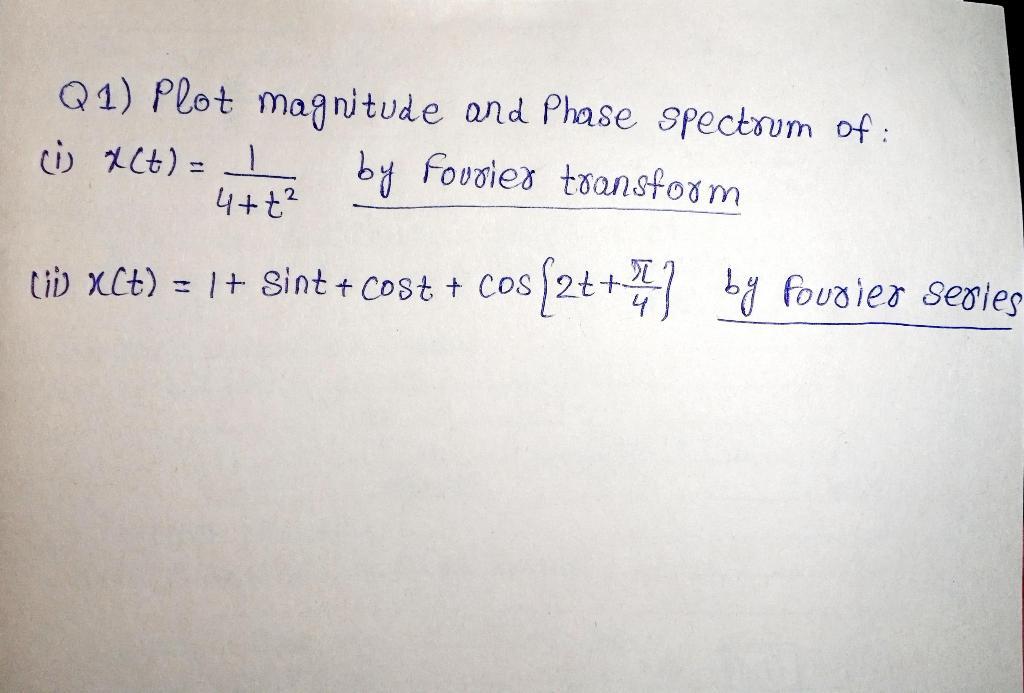 Q1) Plot magnitude and Phase spectrum of :
(i) x(t) = 1/(4+t²) by fourier transform
(ii) x(t) = 1 + Sint + cost + cos{2t + π/4} by fourier series